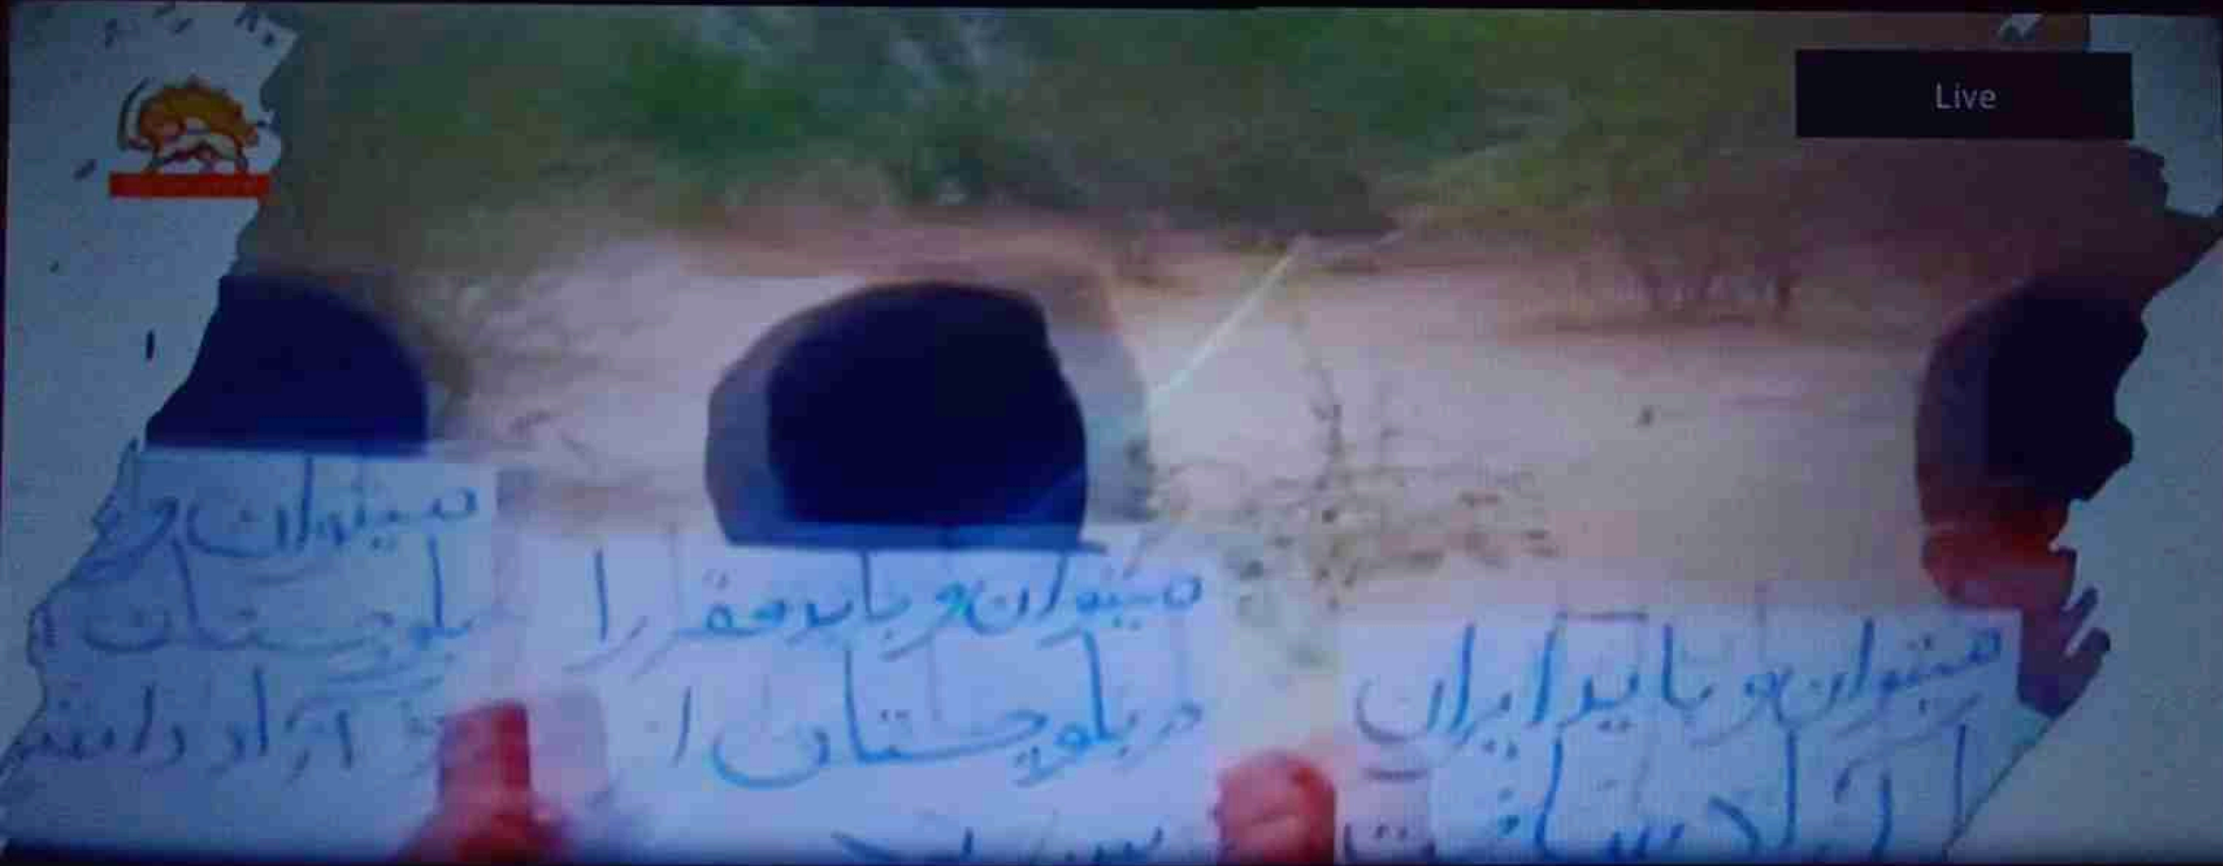 Live
میتوان و باید ایران
را آزاد ساخت
میتوان و باید فقر را
در بلوچستان از
میتوان و
بلوچستان
آزاد